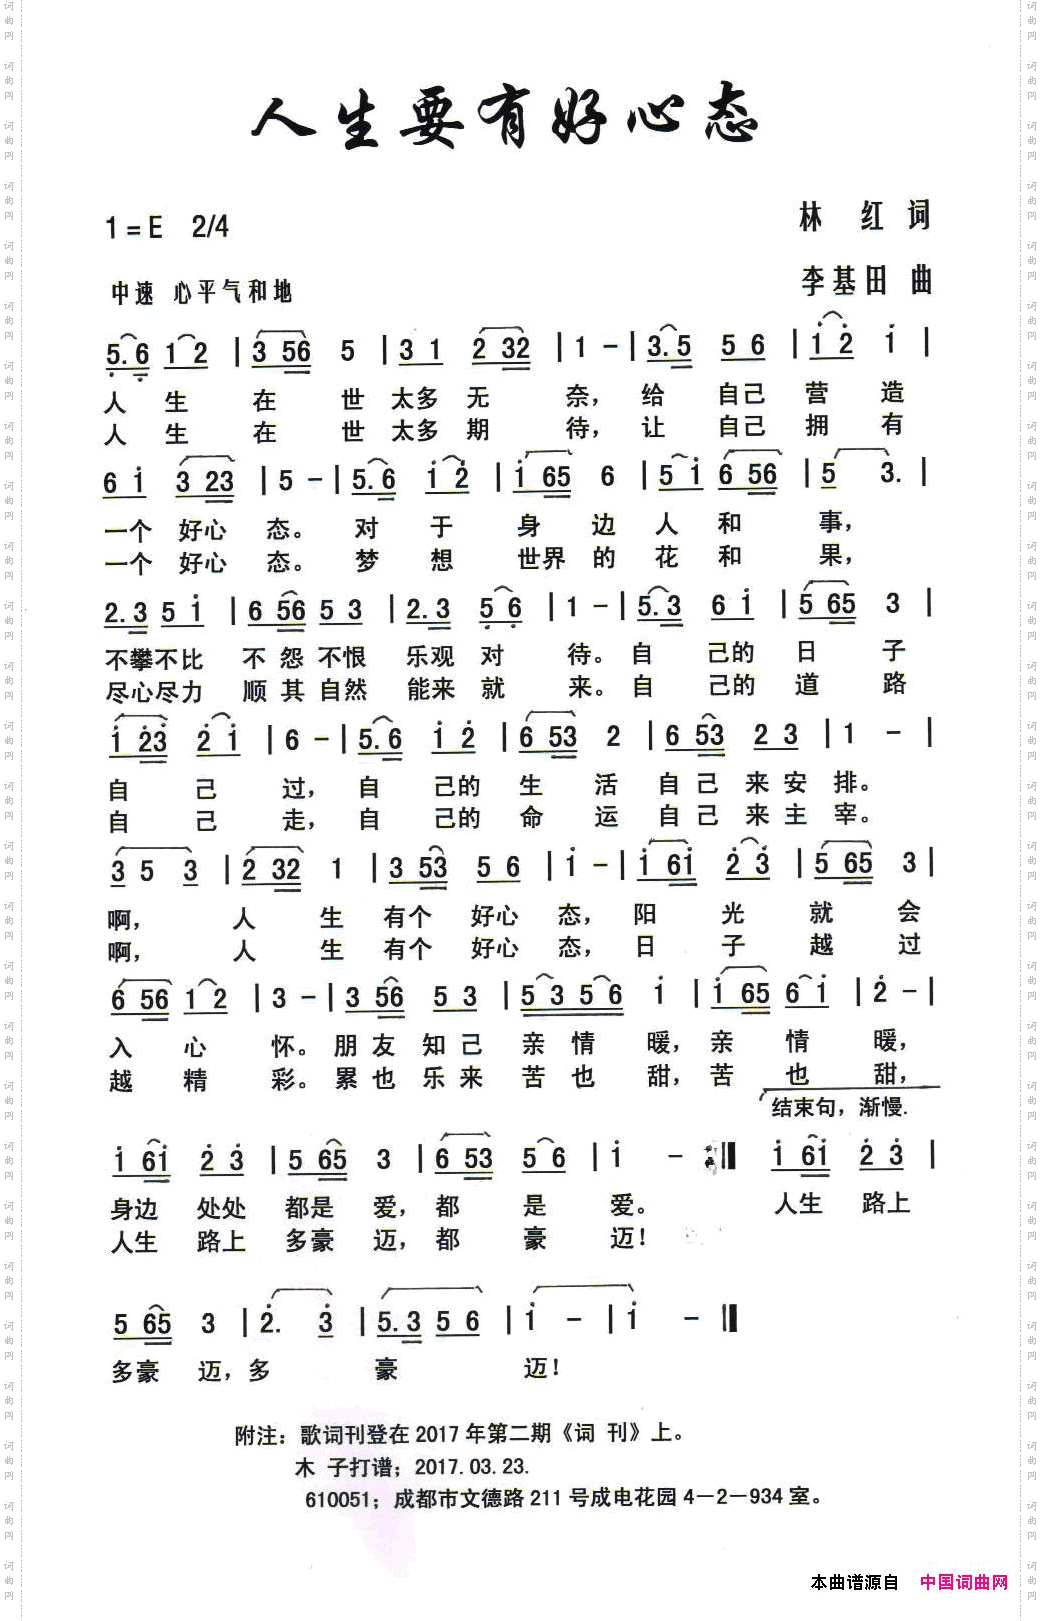 人生要有好心态
1=E 2/4 林 红 词
中速 心平气和地 李基田 曲
5.6 1 2 | 3 56 5 | 3 1 2 32 | 1 - | 3.5 5 6 | i 2 i |
人 生 在 世 太多 无 奈， 给 自己 营 造
人 生 在 世 太多 期 待， 让 自己 拥 有
6 i 3 23 | 5 - | 5.6 i 2 | i 65 6 | 5 i 6 56 | 5 3. |
一个 好心 态。 对 于 身 边 人 和 事，
一个 好心 态。 梦 想 世界 的 花 和 果，
2.3 5 i | 6 56 5 3 | 2.3 5 6 | 1 - | 5.3 6 i | 5 65 3 |
不攀不比 不 怨 不恨 乐观 对 待。 自 己的 日 子
尽心尽力 顺 其 自然 能来 就 来。 自 己的 道 路
i 23 2 i | 6 - | 5.6 i 2 | 6 53 2 | 6 53 2 3 | 1 - |
自 己 过， 自 己的 生 活 自 己 来 安 排。
自 己 走， 自 己的 命 运 自 己 来 主 宰。
3 5 3 | 2 32 1 | 3 53 5 6 | i - | i 6i 2 3 | 5 65 3 |
啊， 人 生 有个 好心 态， 阳 光 就 会
啊， 人 生 有个 好心 态， 日 子 越 过
6 56 1 2 | 3 - | 3 56 5 3 | 5 3 5 6 i | i 65 6 i | 2 - |
入 心 怀。 朋 友 知 己 亲 情 暖， 亲 情 暖，
越 精 彩。 累 也 乐 来 苦 也 甜， 苦 也 甜，
结束句，渐慢.
i 6i 2 3 | 5 65 3 | 6 53 5 6 | i - :‖ i 6i 2 3 |
身边 处处 都是 爱， 都 是 爱。 人生 路上
人生 路上 多豪 迈， 都 豪 迈！
5 65 3 | 2. 3 | 5.3 5 6 | i - | i - ‖
多豪 迈，多 豪 迈！
附注：歌词刊登在2017年第二期《词 刊》上。
木 子打谱；2017.03.23.
610051；成都市文德路211号成电花园4－2－934室。
本曲谱源自 中国词曲网